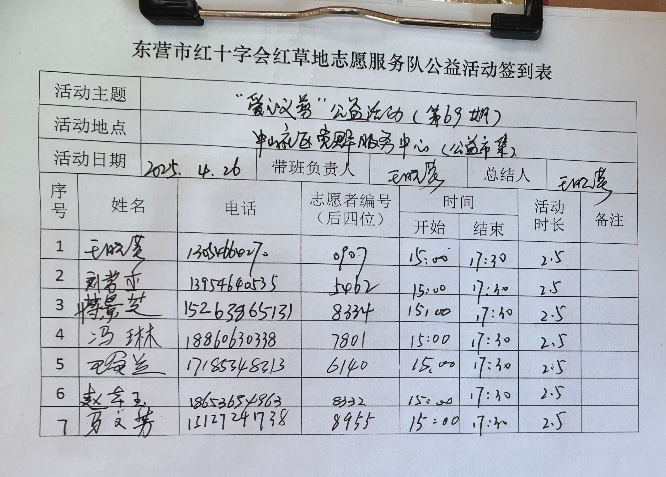 东营市红十字会红草地志愿服务队公益活动签到表
活动主题 "爱心义剪"公益活动(第69期)
活动地点 中山社区党群服务中心(公益市集)
活动日期 2025.4.26 带班负责人 王晓蓉 总结人 王晓蓉
序号 姓名 电话 志愿者编号(后四位) 时间 开始 结束 活动时长 备注
1 王晓蓉 0907 15:00 17:30 2.5
2 13954640535 5462 15:00 17:30 2.5
3 15263865131 8334 15:00 17:30 2.5
4 冯琳 18860630338 7801 15:00 17:30 2.5
5 17185348213 6140 15:00 17:30 2.5
6 赵东玉 18653654963 8332 15:00 17:30 2.5
7 万文芳 15127241738 8955 15:00 17:30 2.5